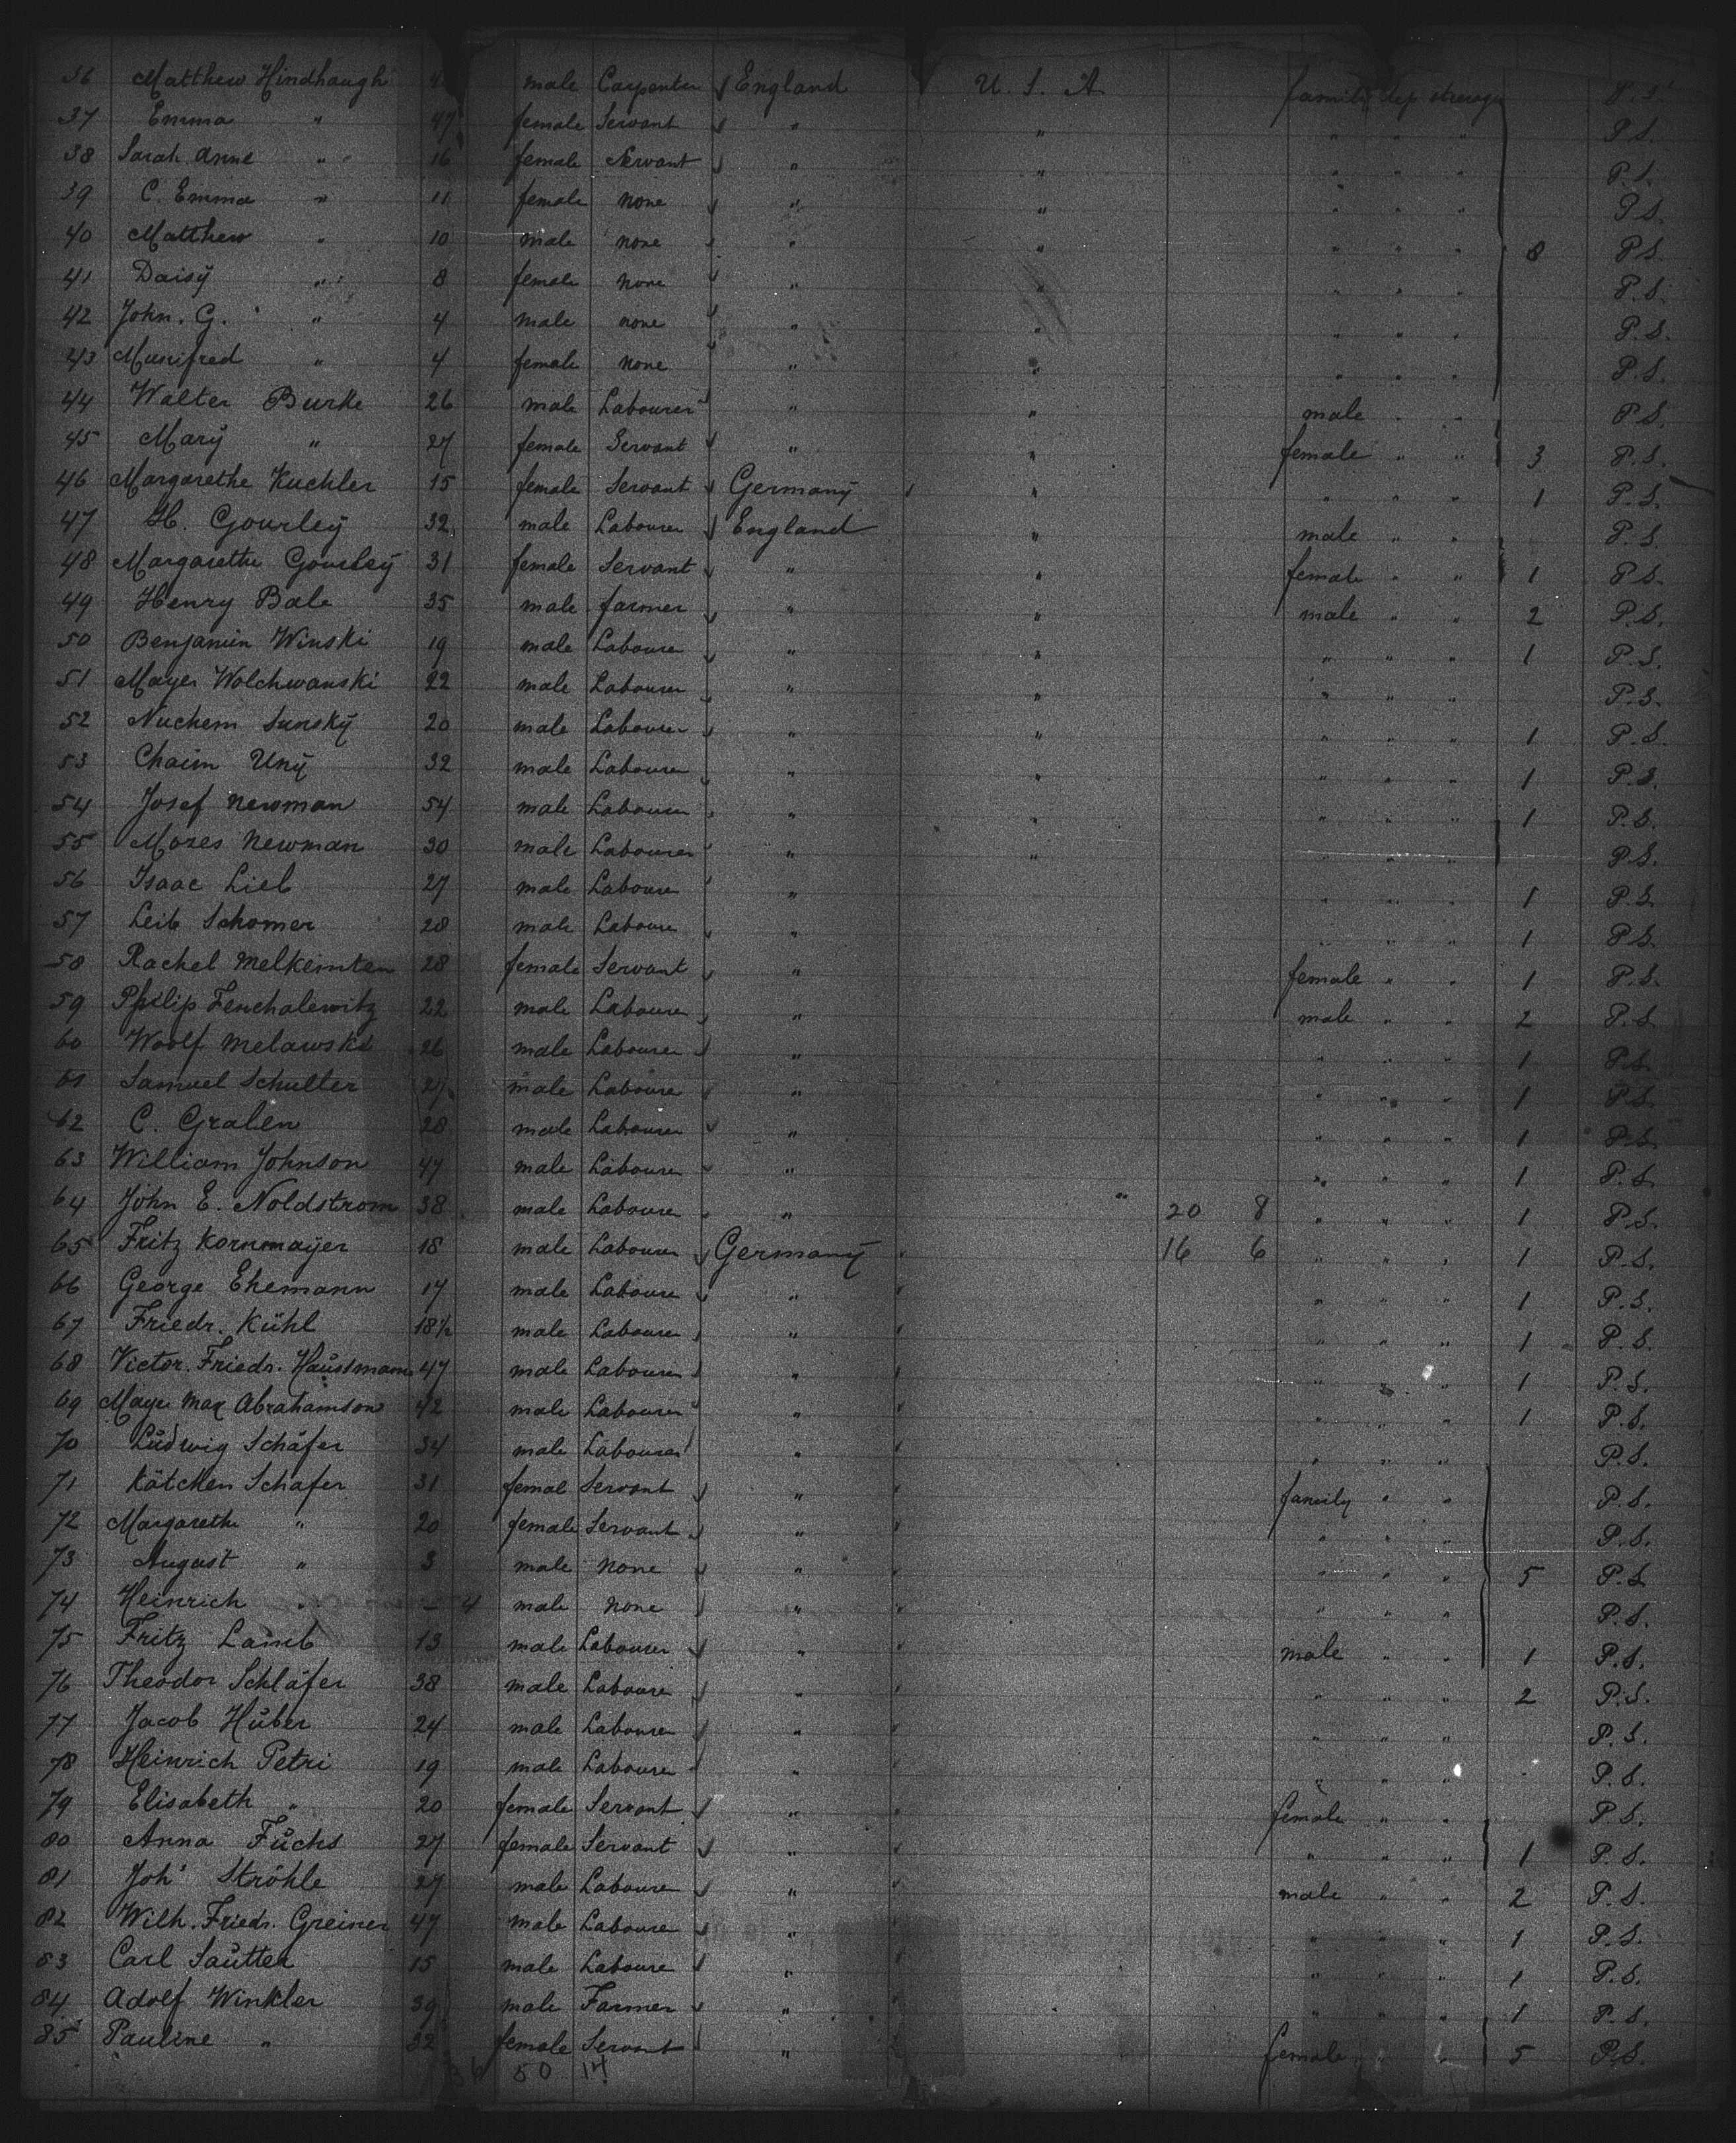 36 Matthew Hindhaugh male Carpenter England U. S. A. family dep steerage P. S.
37 Emma " 47 female Servant " " " " " P S.
38 Sarah Anne " 16 female Servant " " " " " P. S.
39 C. Emma " 11 female none " " " " " P S.
40 Matthew " 10 male none " " " " " 8 P S.
41 Daisy " 8 female none " " " " " P. S.
42 John. G. " 4 male none " " " " " P. S.
43 " 4 female none " " " " " P. S.
44 Walter Burke 26 male Labourer " " male " " P S.
45 Mary " 27 female Servant " " female " " 3 P. S.
46 Margarethe Kuchler 15 female Servant Germany " " " " 1 P. S.
47 H. Gourley 32 male Labourer England " male " " P. S.
48 Margarethe Gourley 31 female Servant " " female " " 1 P S.
49 Henry Bale 35 male farmer " " male " " 2 P. S.
50 Benjamin Winski 19 male Labourer " " " " " 1 P. S.
51 Mayer Wolchwanski 22 male Labourer " " " " " P. S.
52 Nuchem Sunsky 20 male Labourer " " " " " 1 P. S.
53 Chaim Uny 32 male Labourer " " " " " 1 P. S.
54 Josef Newman 54 male Labourer " " " " " 1 P. S.
55 Mozes Newman 30 male Labourer " " " " " P. S.
56 Isaac Lieb 27 male Labourer " " " " 1 P. S.
57 Leib Schomer 28 male Labourer " " " " 1 P. S.
58 Rachel Melkeinten 28 female Servant " female " " 1 P. S.
59 Philip Fenchalewitz 22 male Labourer " male " " 2 P. S.
60 Woolf Melawski 26 male Labourer " " " " 1 P. S.
61 Samuel Schulter 27 male Labourer " " " " 1 P. S.
62 C. Gralen 28 male Labourer " " " " 1 P. S.
63 William Johnson 47 male Labourer " " " " 1 P. S.
64 John E. Noldstrom 38 male Labourer " " 20 8 " " " 1 P. S.
65 Fritz Kornmayer 18 male Labourer Germany 16 6 " " " 1 P. S.
66 George Ehemann 17 male Labourer " " " " 1 P. S.
67 Friedr. Kühl 18½ male Labourer " " " " 1 P. S.
68 Victor. Friedr. Haussmann 47 male Labourer " " " " 1 P. S.
69 Mayer Max Abrahamson 42 male Labourer " " " " 1 P. S.
70 Ludwig Schäfer 34 male Labourer " " " " P. S.
71 Kätchen Schafer 31 femal Servant " family " " P. S.
72 Margarethe " 20 female Servant " " " " P. S.
73 August " 3 male none " " " " 5 P. S.
74 Heinrich " – 4 male none " " " " P. S.
75 Fritz Lamb 13 male Labourer " male " " 1 P. S.
76 Theodor Schläfer 38 male Labourer " " " " 2 P. S.
77 Jacob Huber 24 male Labourer " " " " P. S.
78 Heinrich Petri 19 male Labourer " " " " P. S.
79 Elisabeth " 20 female Servant " female " " P S.
80 Anna Fuchs 27 female Servant " " " " 1 P. S.
81 Joh' Ströhle 27 male Labourer " male " " 2 P. S.
82 Wilh. Friedr. Greiner 47 male Labourer " " " " 1 P. S.
83 Carl Sautter 15 male Labourer " " " " 1 P. S.
84 Adolf Winkler 39 male Farmer " " " " 1 P. S.
85 Pauline " 32 female Servant " female " " 5 P. S.
36 50 14